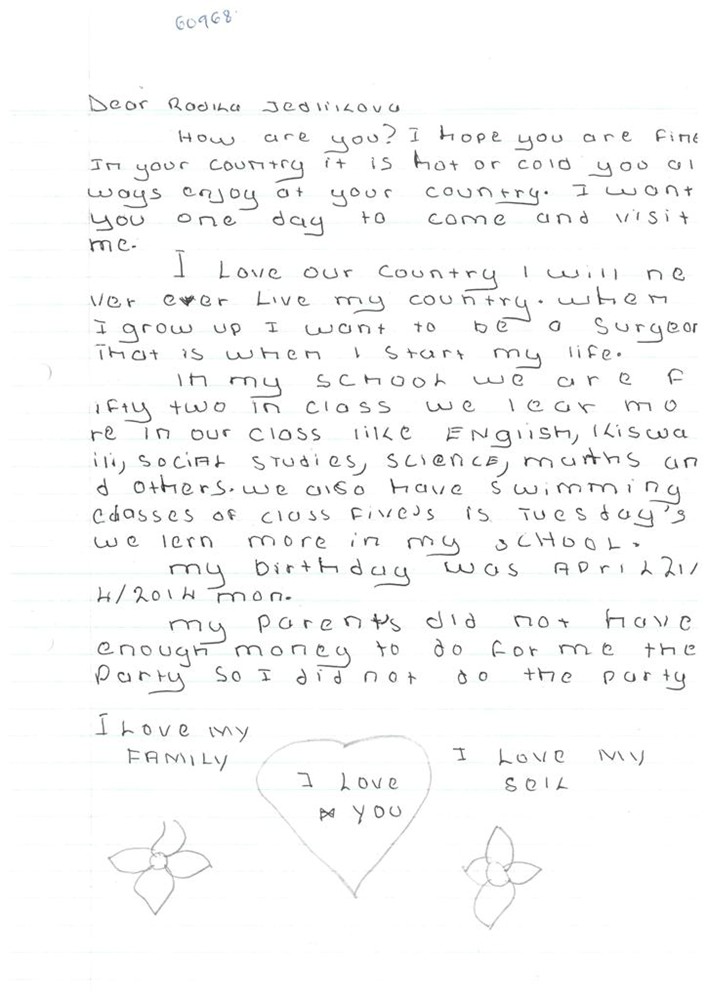 60968
Dear Radika Jedlikova
How are you? I hope you are fine
In your country it is hot or cold you al
ways enjoy at your country. I want
you one day to come and visit
me.
I Love our country I will ne
ver ever Live my country. when
I grow up I want to be a Surgeon
That is when I start my life.
In my SCHOOL we are f
ifty two in class we lear mo
re in our class like ENGlish, Kiswa
ili, SOCIAL studies, SCIENCE, maths an
d others. we also have swimming
classes of class five's is Tuesday's
we lern more in my SCHOOL.
my birthday was APRIL 21/
4/2014 mon.
my parents did not have
enough money to do for me the
Party So I did not do the party
I Love my
FAMILY
I Love
YOU
I LOVE MY
SELL